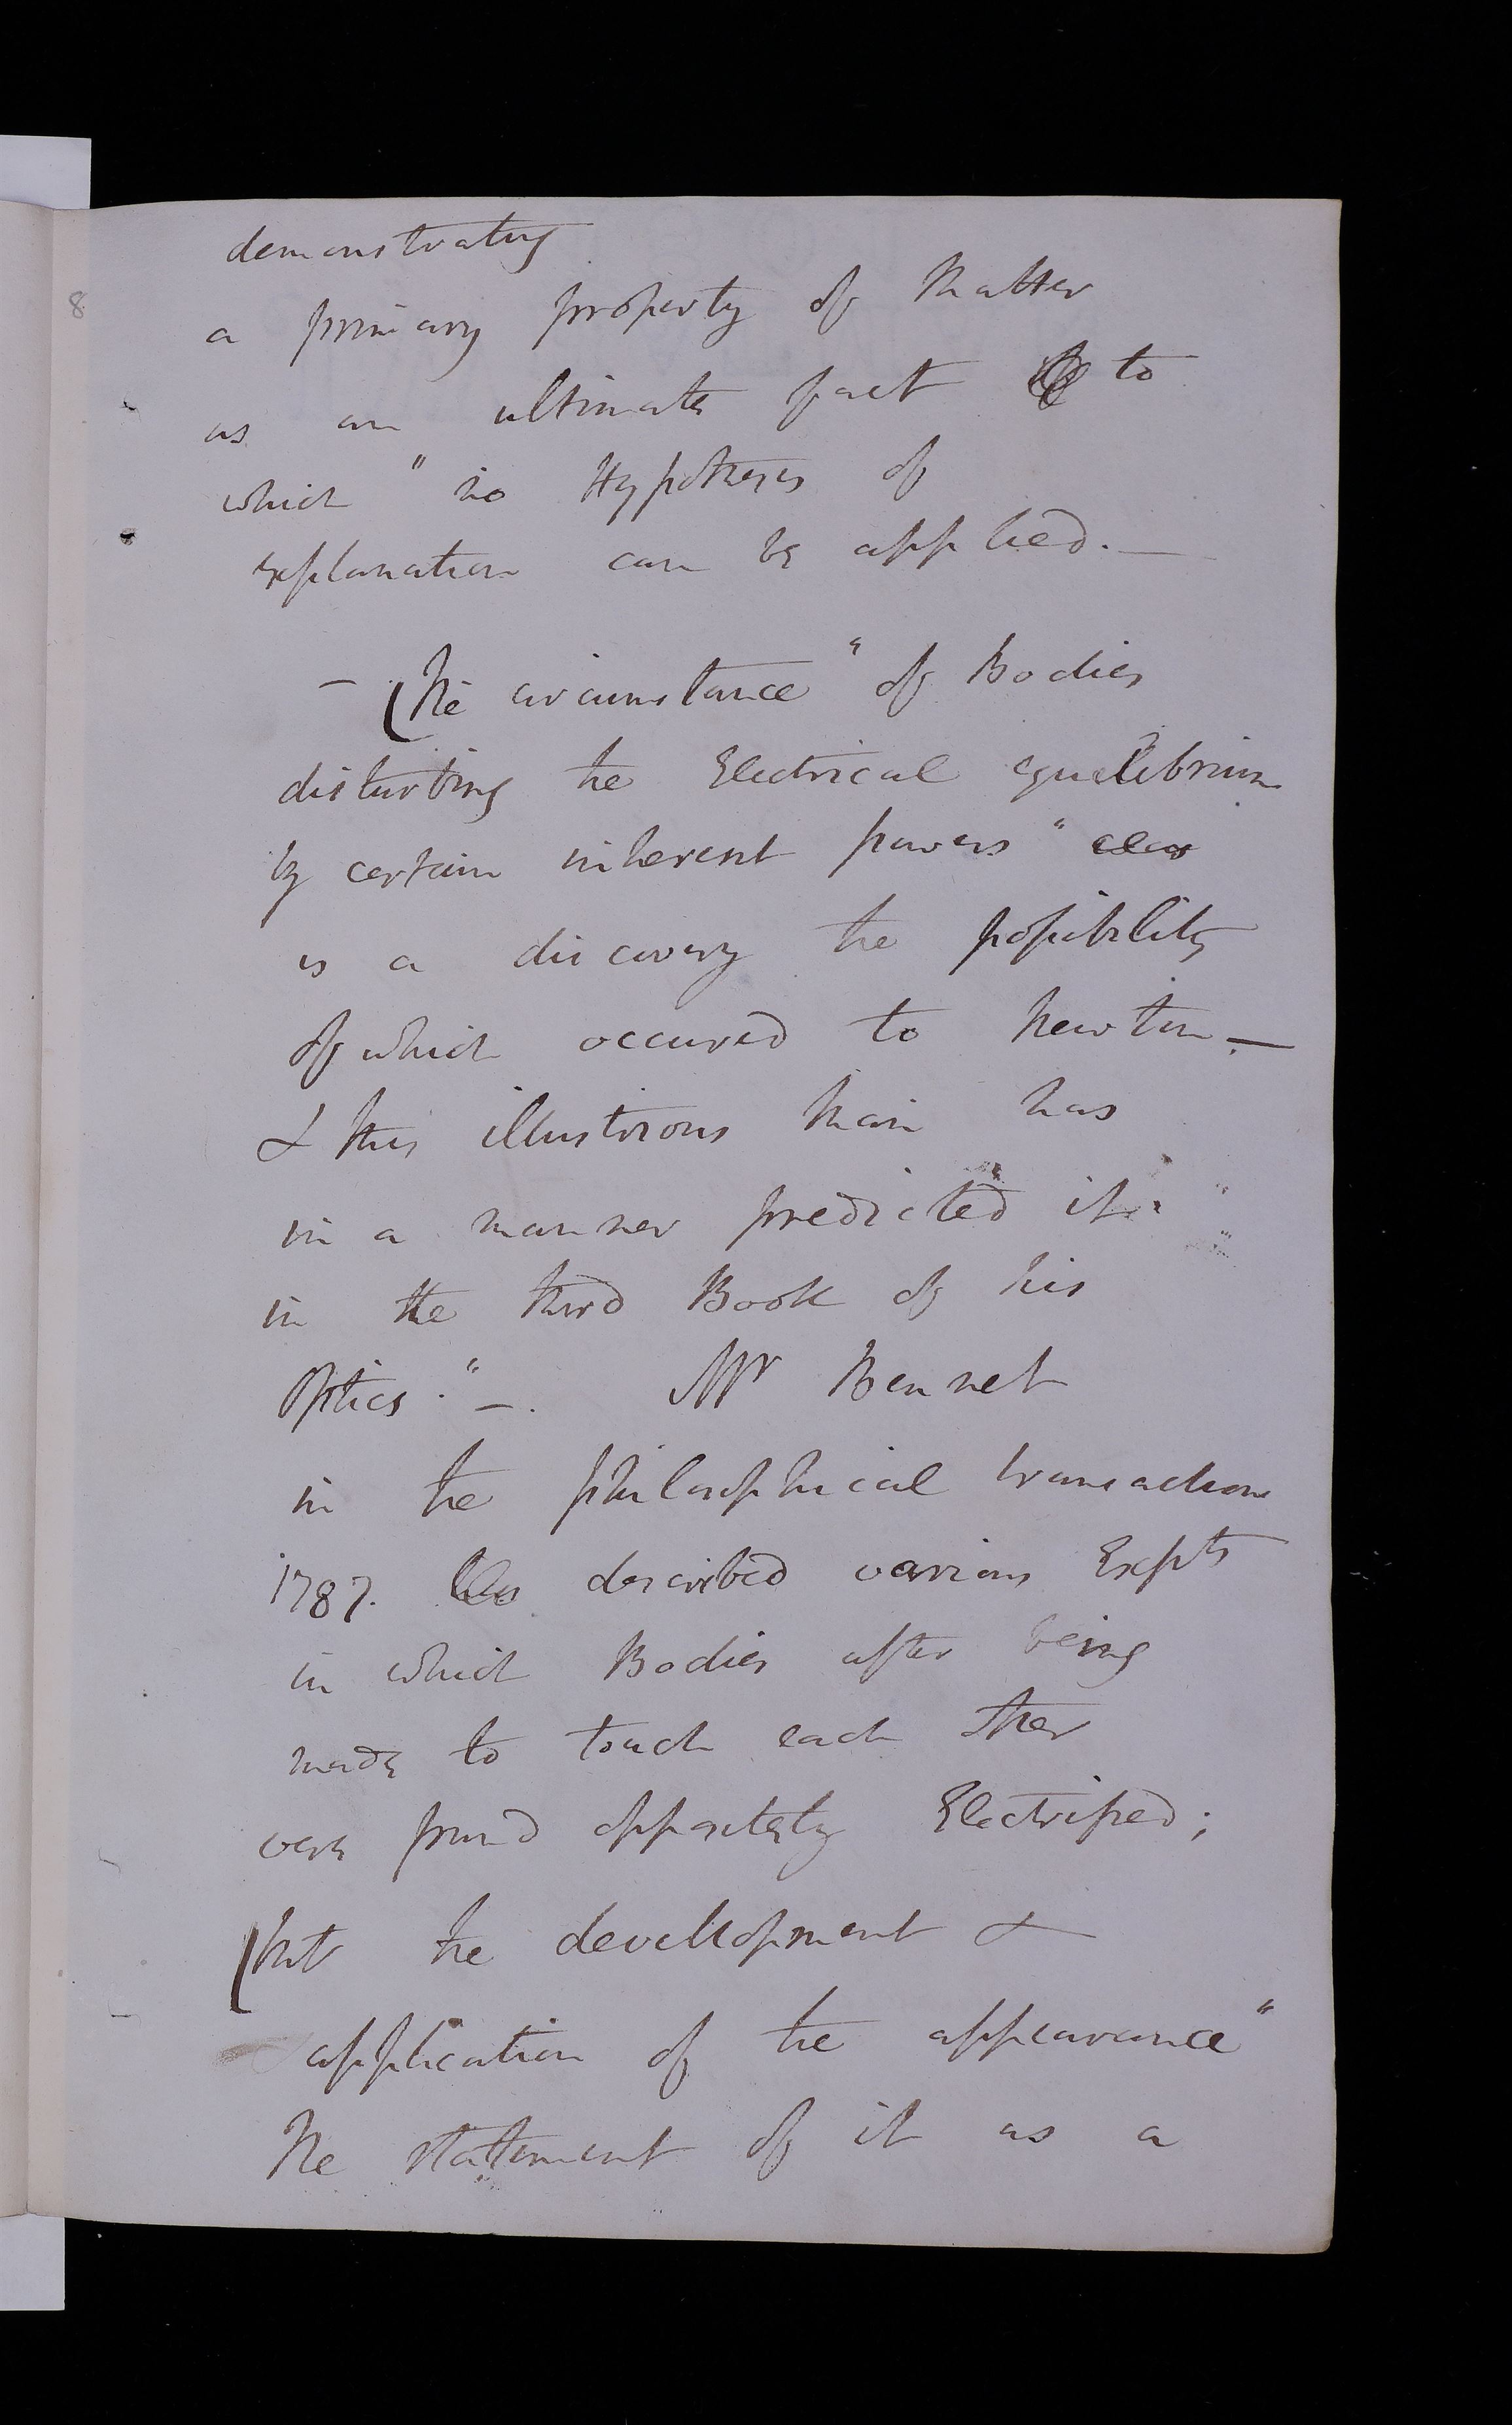 8.
demonstrating
a primary property of Matter
as an ultimate fact to
which "no Hypothesis of
explanation can be applied. —
— (The circumstance" of Bodies
disturbing the Electrical equilibrium
by certain inherent powers"
is a discovery the possibility
of which occured to Newton. —
& this illustrious Man has
in a manner predicted it.
in the third Book of his
Optics." —. Mr Bennet
in the philosophical transactions
1787. has described various Expts
in which Bodies after being
made to touch each other
were found oppositely Electrified;
(but the devellopment &
application of the appearance"
The statement of it as a